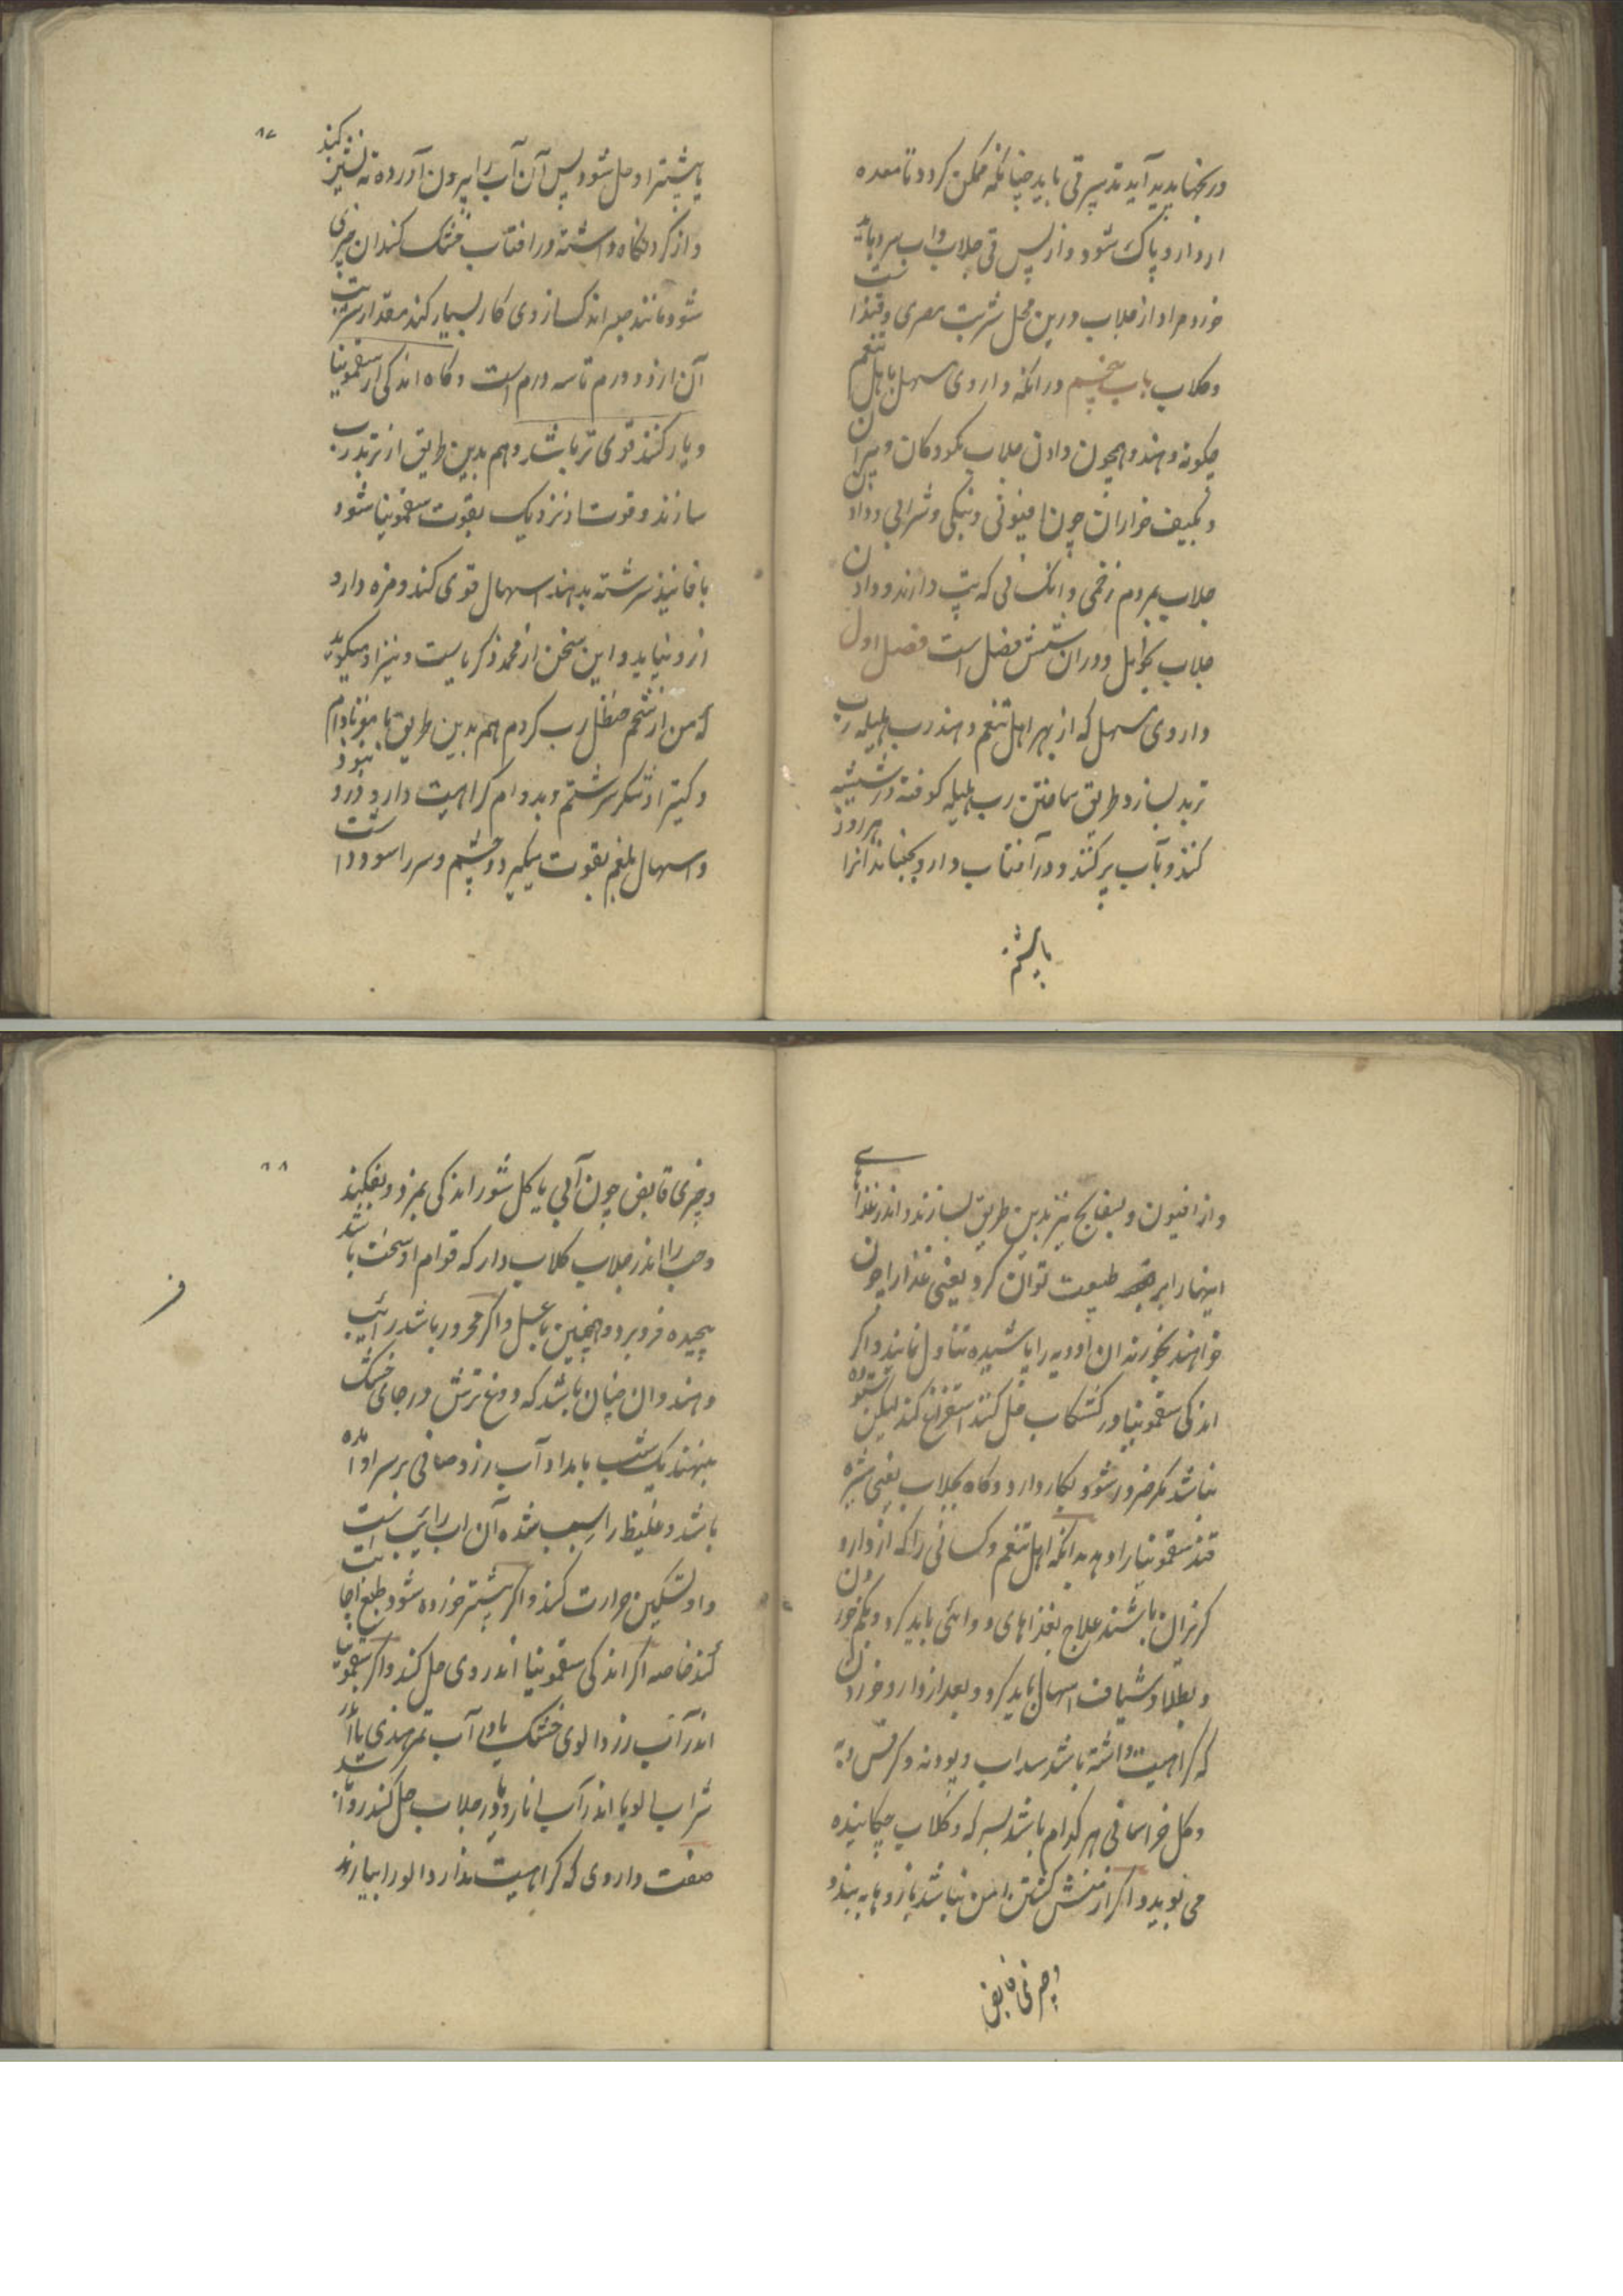 در بخنبانید پدید آید تدبیر قی باید چنانکه ممکن کردد تا معده
از دارو پاک شود و از پس قی جلاب و آب سرد باید
خورد مراد از جلاب درین محل شربت مصری و قندا ست
و کلاب باب پنجم در انکه داروی مسهل باهل تنعم
چکونه دهند و همچون دادن جلاب بکودکان و پیران
و بکیف خواران چون افیونی و بنکی و شرابی و دادن
جلاب بمردم زخمی و انکسانی که تب دارند و دادن
جلاب بحوامل و دران شش فصل است فصل اول
داروی مسهل که از بهر اهل تنعم دهند رب هلیله رب
تربد بسازد طریق ساختن رب هلیله کوفته در شیشه
کنند و بآب پر کنند و در آفتاب دارد بجنباند انرا هر روز
تا بیشتر
۸۷
تا بیشتر او حل شود پس آن آب را بیرون آورده ته نشین کنند
و از کرد نکاه داشته در افتاب خشک کنند ان چیزی
شود مانند صبر اندکی از وی کار بسیار کند مقدار شربت
آن از دو درم تا سه درم است و کاه اندکی از سقمونیا
و یار کنند قوی تر باشد و هم بدین طریق از تربد رب
سازند و قوت او نزدیک بقوت سقمونیا شود
با فانیذ سرشته بدهند اسهال قوی کند و مزه دارو
ازو نیاید و این سخن از محمد ذکریاست و نیز او میکوید
که من از شحم حنظل رب کردم هم بدین طریق با مغز بادام
و کتیرا و شکر سرشتم و بدادم کراهیت دارو درو نبود
و اسهال بلغم بقوت میکند و چشم و سر را سود داشت
و از افتیون و بسفایج نیز بدین طریق بسازند و اندر غذاهای
اینها را بر طبیعت توان کرد یعنی غذا را چون
خواهند بخورند ان ادویه را پاشیده تناول نمایند و اکر
اندکی سقمونیا در کشکاب حل کنند استفراغ کند لیکن ستوده
نباشد مکر ضرور شود بکار دارد و کاه بجلاب یعنی شیره
قند سقمونیا را دهد بدانکه اهل تنعم و کسانی را که از دارو
کریزان باشند علاج بغذاهای دوائی باید کرد و بکم خوردن
و بطلا و شیاف اسهال باید کرد و بعد از دارو خوردن
که کراهیت داشته باشد سداب و پودنه و کرفس و به
و کل خراسانی هر کدام باشد بسرکه و کلاب چکانیده
می بوید و اکر از منش کشتن ایمن نباشد بازوها به بندد
و چیزی قابض
۸۸
و چیزی قابض چون آبی یا کل شور اندکی بمزد و بفکند
و حب را اندر جلاب کلاب دار که قوام او سخت باشد
پیچیده فرو برد و همچنین با عسل و اکر محرور باشد رائیب
دهند و ان چنان باشد که دوغ ترش در جای خنک
بنهند یک شب بامداد آب زرد صافی بر سر او آمده
باشد و غلیظ راسب شده آن اب رائیب است
و او تسکین حرارت کند و اکر بیشتر خورده شود طبع اجابت
کند خاصه اکر اندکی سقمونیا اندر وی حل کنند و اکر سقمونیا
اندر آب زردالوی خشک یا در آب تمر هندی یا اندر
شراب الو یا اندر آب انار و در جلاب حل کنند روا باشد
صفت داروی که کراهیت ندارد الو را بیارند
ف